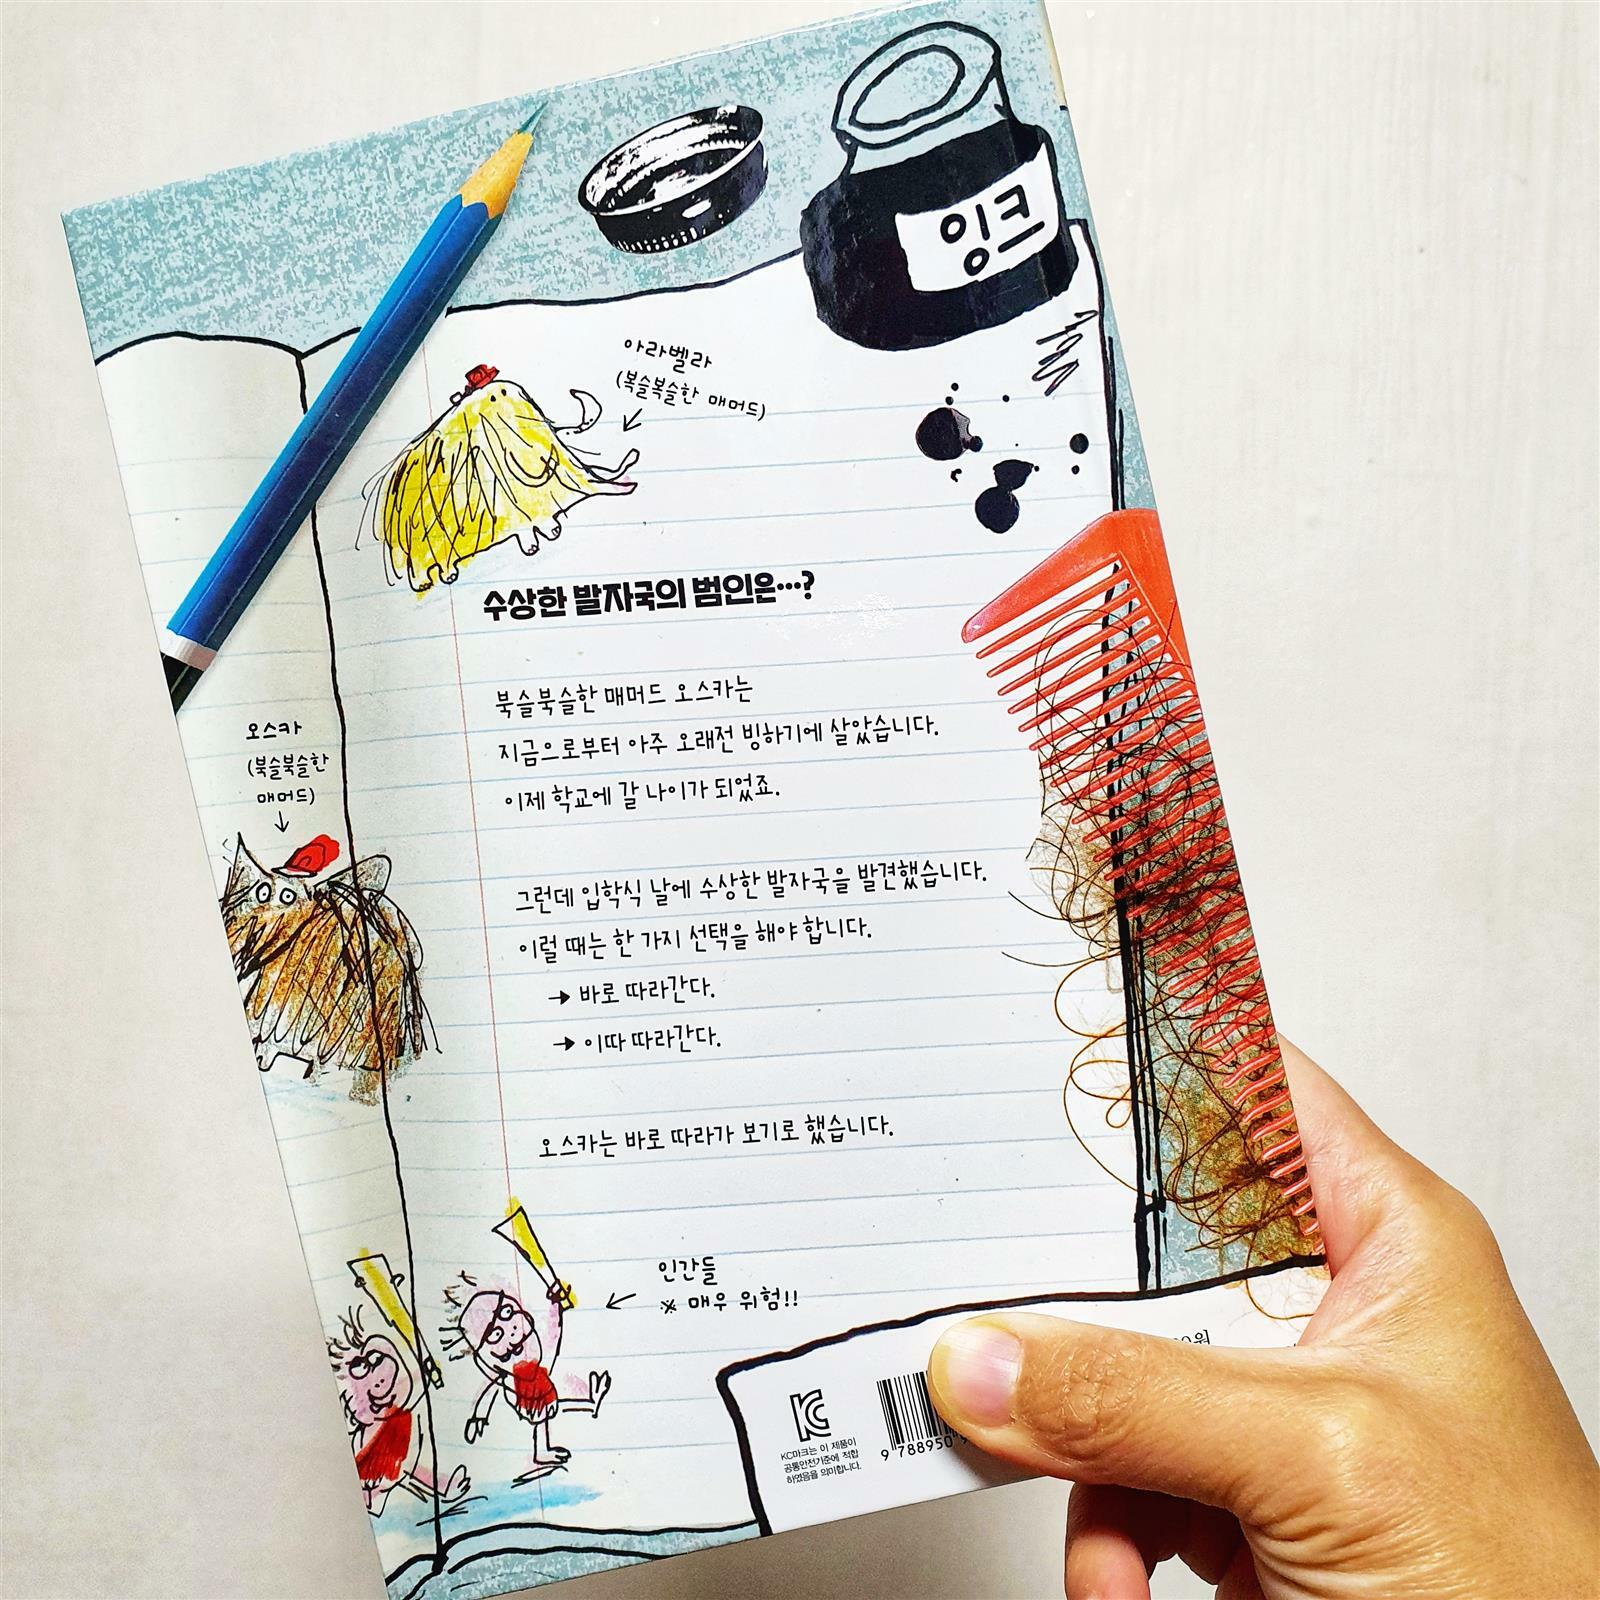 잉크
아라벨라
(복슬복슬한 매머드)
수상한 발자국의 범인은…?
북슬북슬한 매머드 오스카는
지금으로부터 아주 오래전 빙하기에 살았습니다.
이제 학교에 갈 나이가 되었죠.
오스카
(북슬북슬한
매머드)
그런데 입학식 날에 수상한 발자국을 발견했습니다.
이럴 때는 한 가지 선택을 해야 합니다.
→ 바로 따라간다.
→ 이따 따라간다.
오스카는 바로 따라가 보기로 했습니다.
인간들
※ 매우 위험!!
KC마크는 이 제품이
공통안전기준에 적합
하였음을 의미합니다.
9 788950